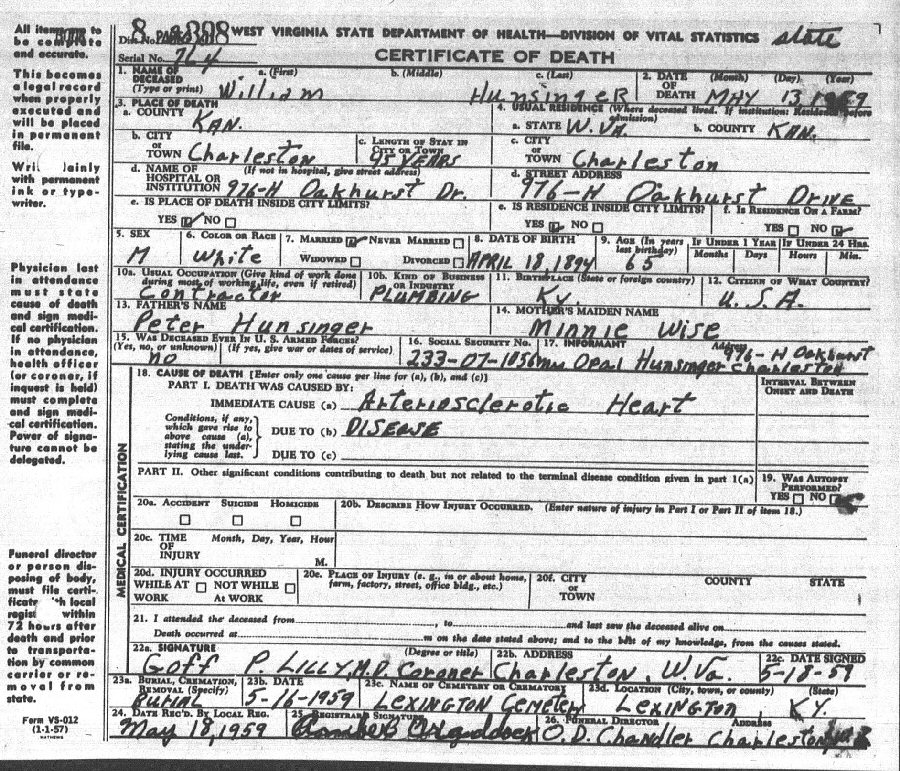 WEST VIRGINIA STATE DEPARTMENT OF HEALTH—DIVISION OF VITAL STATISTICS state
Serial No. 764
CERTIFICATE OF DEATH
All items to be complete and accurate.
This becomes a legal record when properly executed and will be placed in permanent file.
with permanent ink or type-writer.
Physician last in attendance must state cause of death and sign medi-cal certification. If no physician in attendance, health officer (or coroner, if inquest is held) must complete and sign medi-cal certification. Power of signa-ture cannot be delegated.
Funeral director or person dis-posing of body, must file certi-local within 72 hours after death and prior to transporta-tion by common carrier or re-moval from state.
Form VS-012
(1-1-57)
MATHEWS
1. NAME OF DECEASED (Type or print) a. (First) b. (Middle) c. (Last) 2. DATE OF DEATH (Month) (Day) (Year)
William Hunsinger MAY 13 1959
3. PLACE OF DEATH 4. USUAL RESIDENCE (Where deceased lived. If institution: Residence before admission)
a. COUNTY KAN. a. STATE W. VA. b. COUNTY KAN.
b. CITY or TOWN Charleston c. LENGTH OF STAY IN CITY OR TOWN YEARS c. CITY or TOWN Charleston
d. NAME OF HOSPITAL OR INSTITUTION (If not in hospital, give street address) 976-H Oakhurst Dr. d. STREET ADDRESS 976-H Oakhurst Drive
e. IS PLACE OF DEATH INSIDE CITY LIMITS? e. IS RESIDENCE INSIDE CITY LIMITS? f. IS RESIDENCE ON A FARM?
YES NO YES NO YES NO
5. SEX 6. COLOR OR RACE 7. MARRIED NEVER MARRIED 8. DATE OF BIRTH 9. AGE (In years last birthday) IF UNDER 1 YEAR IF UNDER 24 HRS.
M White WIDOWED DIVORCED APRIL 18, 1894 65 Months Days Hours Min.
10a. USUAL OCCUPATION (Give kind of work done during most of working life, even if retired) 10b. KIND OF BUSINESS OR INDUSTRY 11. BIRTHPLACE (State or foreign country) 12. CITIZEN OF WHAT COUNTRY?
Contractor PLUMBING Ky. U.S.A.
13. FATHER'S NAME 14. MOTHER'S MAIDEN NAME
Peter Hunsinger Minnie Wise
15. WAS DECEASED EVER IN U. S. ARMED FORCES? 16. SOCIAL SECURITY NO. 17. INFORMANT Address
(Yes, no, or unknown) (If yes, give war or dates of service) 976-H Oakhurst
no 233-07-1056 Mrs Opal Hunsinger Charleston
18. CAUSE OF DEATH [Enter only one cause per line for (a), (b), and (c)] INTERVAL BETWEEN ONSET AND DEATH
PART I. DEATH WAS CAUSED BY:
IMMEDIATE CAUSE (a) Arteriosclerotic Heart
Conditions, if any, which gave rise to above cause (a), stating the under-lying cause last. DUE TO (b) DISEASE
DUE TO (c)
MEDICAL CERTIFICATION
PART II. Other significant conditions contributing to death but not related to the terminal disease condition given in part 1(a) 19. WAS AUTOPSY PERFORMED?
YES NO
20a. ACCIDENT SUICIDE HOMICIDE 20b. DESCRIBE HOW INJURY OCCURRED. (Enter nature of injury in Part I or Part II of item 18.)
20c. TIME OF INJURY Month, Day, Year, Hour
M.
20d. INJURY OCCURRED 20e. PLACE OF INJURY (e. g., in or about home, farm, factory, street, office bldg., etc.) 20f. CITY or TOWN COUNTY STATE
WHILE AT WORK NOT WHILE AT WORK
21. I attended the deceased from , to and last saw the deceased alive on
Death occurred at m on the date stated above; and to the best of my knowledge, from the causes stated.
22a. SIGNATURE (Degree or title) 22b. ADDRESS 22c. DATE SIGNED
Goff P. Lilly, M.D. Coroner Charleston, W. Va. 5-18-59
23a. BURIAL, CREMATION, REMOVAL (Specify) 23b. DATE 23c. NAME OF CEMETERY OR CREMATORY 23d. LOCATION (City, town, or county) (State)
Burial 5-16-1959 LEXINGTON Cemetery LEXINGTON, KY.
24. DATE REC'D. BY LOCAL REG. 25. REGISTRAR'S SIGNATURE 26. FUNERAL DIRECTOR ADDRESS
May 18, 1959 O.D. Chandler Charleston